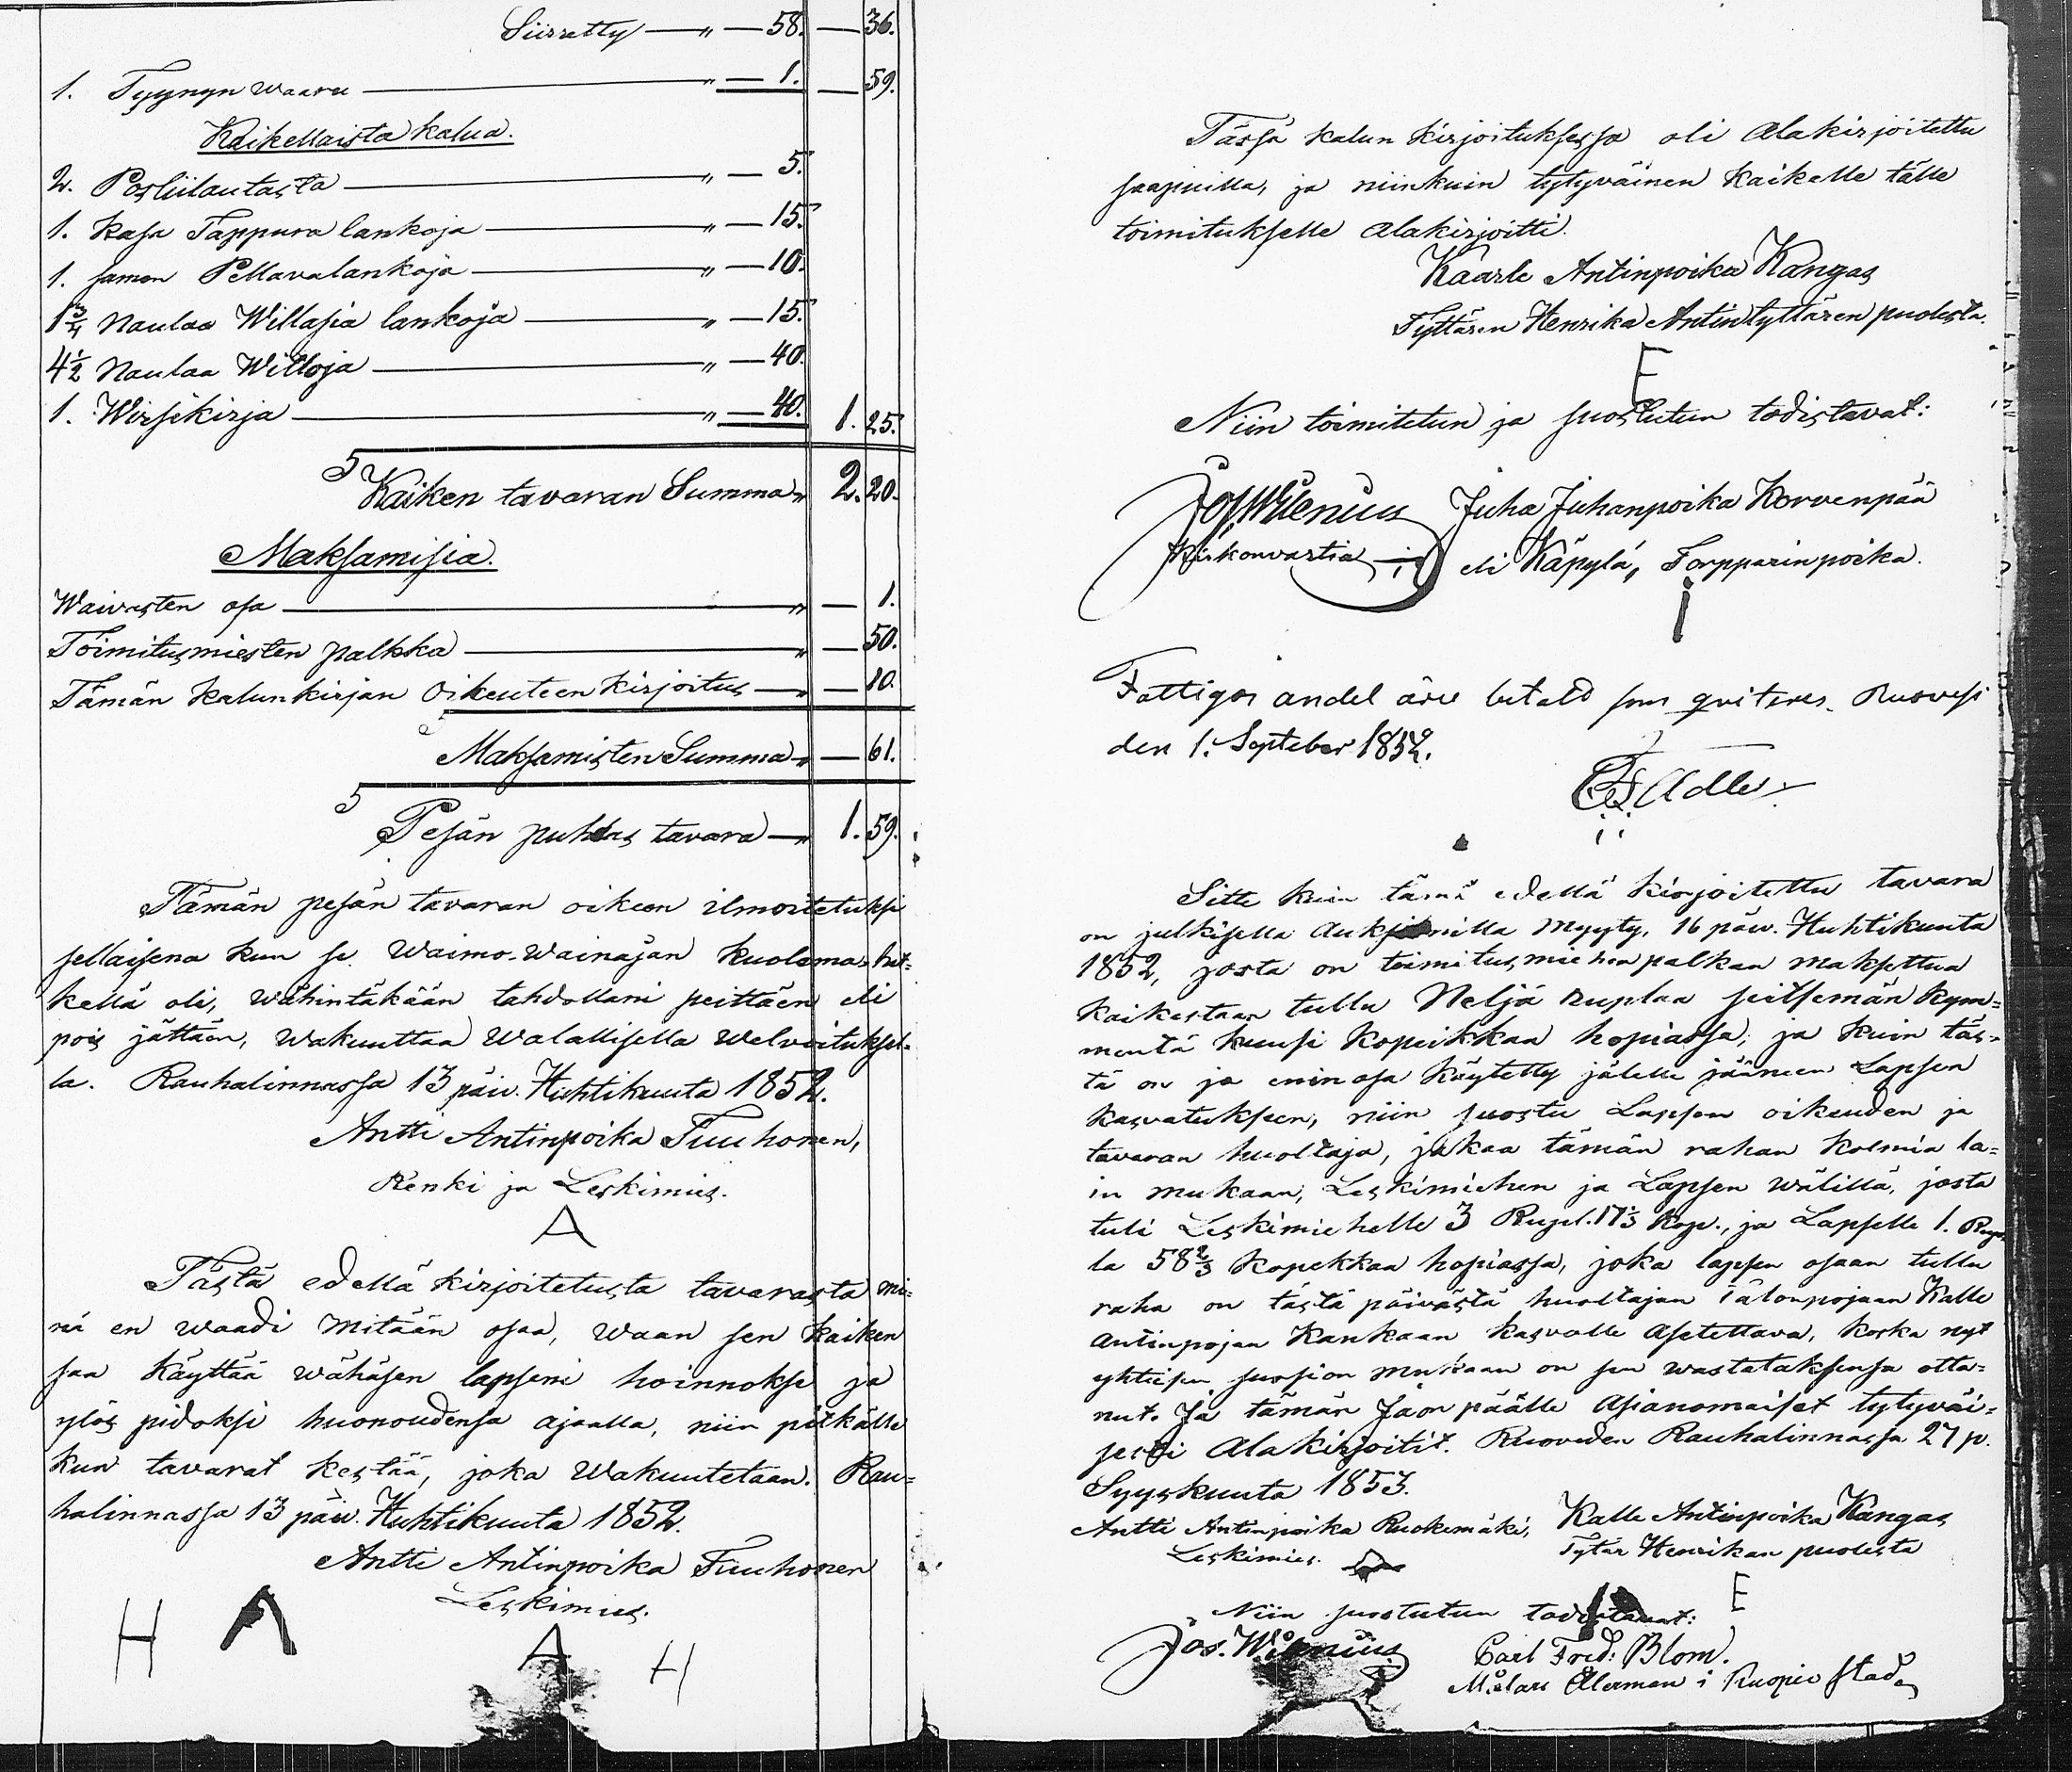 Siirretty — „ — 58. — 36.
1. Tyynyn waaru — „ — 1. — 59.
Kaikellaista kalua.
2. Posliilautasta — „ — 5.
1. Kasa Tappura lankoja — „ — 15.
1. samon Pellavalankoja — „ — 10.
1¾ Naulaa Willasia lankoja — „ — 15.
4½ Naulaa Willoja — „ — 40.
1. Wirsikirja — „ — 40. 1. 25.
Kaiken tavaran Summa „ 2. 20.
Maksamisia.
Waivasten osa — „ — 1.
Toimitusmiesten palkka — „ — 50.
Tämän kalunkirjan Oikeuteen kirjoitus — „ — 10.
Maksamisten Summa „ — 61.
Pesän puhdas tavara — „ 1. 59.
Tämän pesän tavaran oikeen ilmoitetuksi
sellaisena kun se Waimo-Wainajan kuoleman het-
kellä oli, wähintäkään tahdollani peittäen eli
pois jättäen, wakuuttaa Walallisella Welvoituksel-
la. Rauhalinnassa 13 päiv. Huhtikuuta 1852.
Antti Antinpoika Tuuhonen,
Renki ja Leskimies.
A
Tästä edellä kirjoitetusta tavarasta mi=
nä en waadi mitään osaa, waan sen kaiken
saa käyttää wähäsen lapseni hoinnoksi ja
ylös pidoksi huonoudensa ajaalla, niin pitkälle
kun tavarat kestää, joka Wakuutetaan. Rau=
halinnassa 13 päiv. Huhtikuuta 1852.
Antti Antinpoika Tuuhonen
Leskimies.
H A A H
Tässä kalun kirjoituksessa oli Alakirjoitettu
saapuilla, ja niinkuin tytyväinen kaikelle tälle
toimitukselle Alakirjoitti.
Kaarle Antinpoika Kangas
Tyttären Henrika Antintyttären puolesta.
E
Niin toimitetun ja suostutun todistavat:
Jos Wilenius Juha Juhanpoika Korvenpää
Kirkonvartia eli Käpylä, Torpparinpoika.
Fattigas andel äre betald som qviteres. Ruovesi
den 1. Septeber 1852.
Adler
Sitte kuin tämä edellä kirjoitettu tavara
on julkisella Auksionilla myyty, 16 päiv. Huhtikuuta
1852, josta on toimitusmiehen palkan maksettua
kaikestaan tullu Neljä ruplaa seitsemän kym=
mentä kuusi kopeikkaa hopiassa; ja kuin täs=
tä on jo eninosa käytetty jälelle jääneen Lapsen
kasvatukseen, niin suostu Lapsen oikeuden ja
tavaran huoltaja, jakaa tämän rahan kolmia la=
in mukaan, Leskimiehen ja Lapsen wälillä, josta
tuli Leskimiehelle 3 Rupl. 17⅓ kop., ja Lapselle 1. Rup
la 58⅔ kopekkaa hopiassa, joka lapsen osaan tullu
raha on tästä päivästä huoltajan Talonpojaan Kalle
Antinpojan Kankaan kasvolle Asetettava, koska nyt
yhteisen suosion mukaan on sen wastataksensa otta=
nut. Ja tämän Jaon päälle Asianomaiset tytyväi=
sesti Alakirjoitit. Ruoveden Rauhalinnassa 27 p.
Syyskuuta 1853.
Antti Antinpoika Ruokemäki, Kalle Antinpoika Kangas
Leskimies. Tytär Henrikan puolesta
E
Niin suostutun todistavat:
Jos. Wilenius Carl Fred: Blom.
Målare Ålerman i Kuopio stad